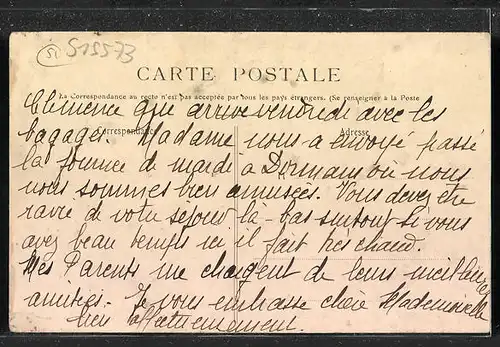 51
515573
CARTE POSTALE
La Correspondance au recto n'est pas acceptée par tous les pays étrangers. (Se renseigner à la Poste
Correspondance
Adresse
Clémence que arrive vendredi avec les
bagages. Madame nous a envoyé passé
la journée de mardi a Dormans où nous
nous sommes bien amusées. Vous devez être
ravie de votre séjour là-bas surtout si vous
avez beau temps ici il fait très chaud.
Mes Parents me chargent de leurs meilleures
amitiés. Je vous embrasse chère Mademoiselle
bien affectueusement.